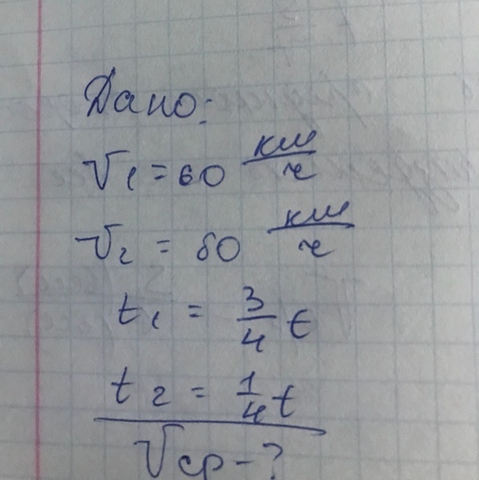 Дано:
V₁ = 60 км/ч
V₂ = 80 км/ч
t₁ = 3/4 t
t₂ = 1/4 t
Vср - ?